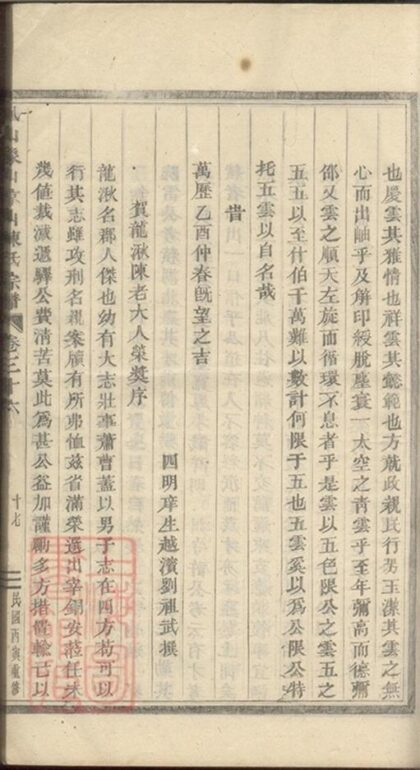 也慶雲其雅情也祥雲其懿範也方就政親民行男玉漾其雲之無
心而出岫乎及解印綬脫塵衰一太空之青雲乎至年彌高而德彌
邵又雲之順天左旋而循環不息者乎是雲以五色限公之雲五之
五五以至什伯千萬難以數計何限于五也五雲奚以為公限公特
托五雲以自名哉
旹
萬歷乙酉仲春旣望之吉
四明庠生越濱劉祖武撰
賀龍湫陳老大人榮奬序
龍湫名郡人傑也幼有大志壯事蕭曹蓋以男子志在四方苟可以
行其志雖攻刑名親案牘有所弗恤茲省滿榮選出宰錫安蒞任未
幾值裁減遞驛公費清苦莫此為甚公益加謹勵多方措償輸己以
陳氏宗譜
卷之二十六
十七
民國酉與重修